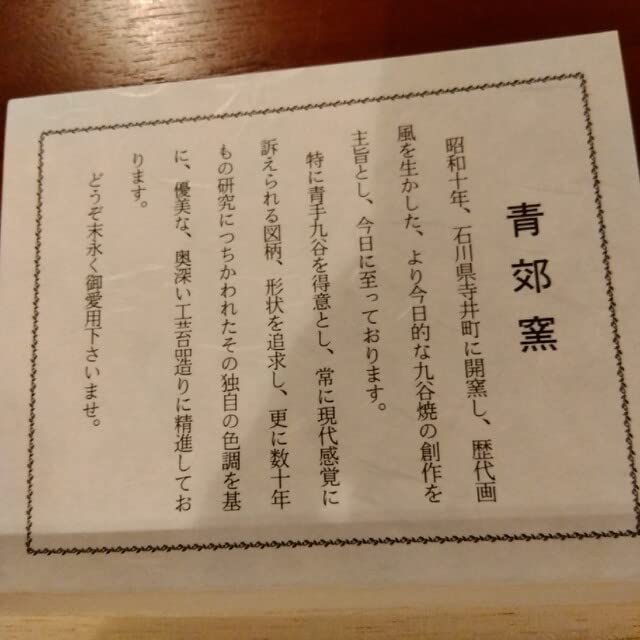 青郊窯
昭和十年、石川県寺井町に開窯し、歴代画
風を生かした、より今日的な九谷焼の創作を
主旨とし、今日に至っております。
特に青手九谷を得意とし、常に現代感覚に
訴えられる図柄、形状を追求し、更に数十年
もの研究につちかわれたその独自の色調を基
に、優美な、奥深い工芸品造りに精進してお
ります。
どうぞ末永く御愛用下さいませ。